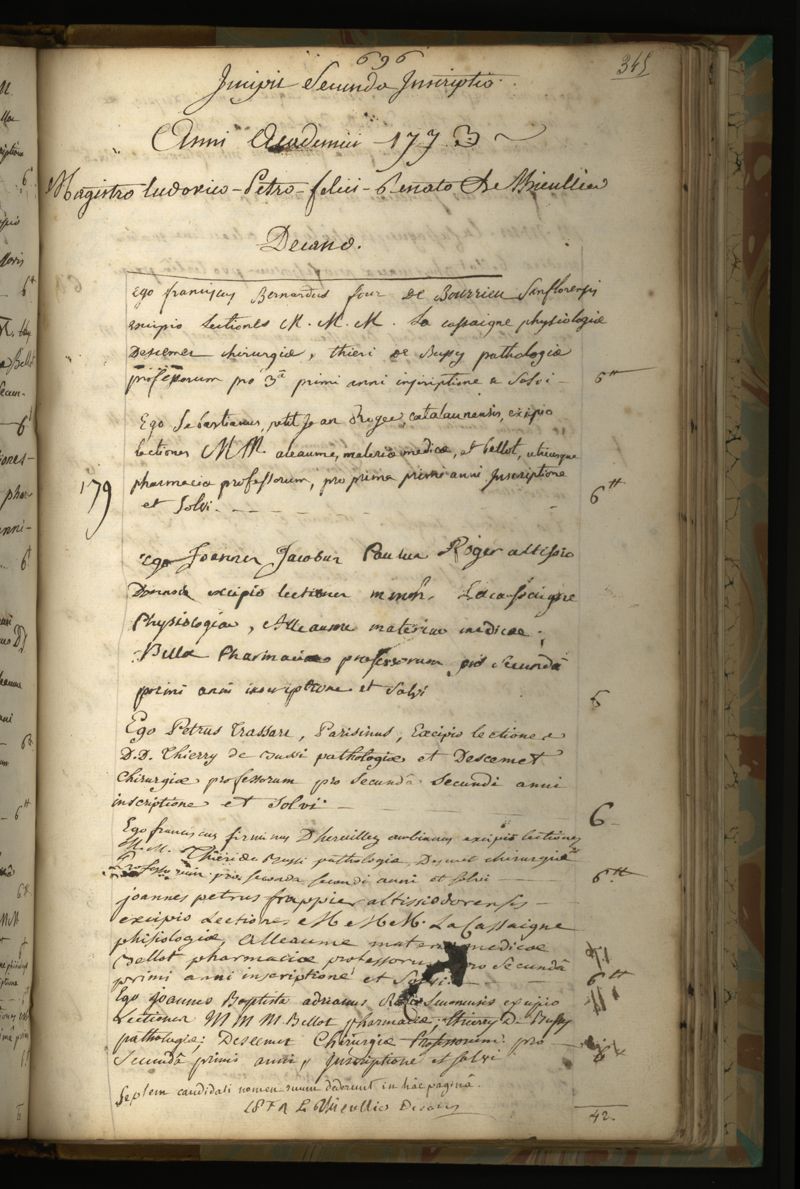 696
345
Incipit Secunda Inscriptio
Anni Academici 1773
Magistro ludovico-Petro-felici-Renato Le Thieullier
Decano.
Ego franciscus Bernardus four De Bourrieu Sanflorensis
excipio Lectiones M. M. M. La cassaigne physiologiæ
Descemet chirurgiæ, thieri de Bussy pathologiæ
professorum pro 3a primi anni inscriptione et Solvi — 6tt
Ego Sebastianus, petit Jean catalaunensis, excipio
lectiones MM. aleaume, materiæ medicæ, et bellot, utriusque
179
pharmaciæ professorum, pro prima primi anni Inscriptione
et Solvi. 6tt
Ego Joannes Jacobus Paulus Roger altissio
excipio lectiones Lacassaigne
Physiologiæ, Alleaume materiæ medicæ,
Bellot Pharmaciæ professorum pro Secundâ
primi anni inscriptione et Solvi 6
Ego Petrus Trassart, Parisinus, Excipio lectiones
D.D. Thierry de Bussi pathologiæ et Descemet
Chirurgiæ professorum pro Secundâ Secundi anni
inscriptione et Solvi. 6
Ego franciscus firminus Dherveillez ambianus excipio lectiones
M. M. Thieri de Bussi pathologiæ, Desmet chirurgiæ
Professorum pro secunda secundi anni et solvi — 6tt
joannes petrus frappier altissiodorensis
excipio Lectiones M M M. La Cassaigne
phisiologiæ, Alleaume materiæ medicæ
Bellot pharmaciæ professorum pro Secundâ
primi anni inscriptione et Solvi 6tt
Ego joannes Baptista adrianus excipio
Lectiones M M M. Bellot pharmaciæ, thierry De Bussy
pathologiæ; Descemet Chirurgiæ Professorum pro
Secundâ primi anni, Inscriptione et solvi 6tt
Septem candidati nomen suum dederunt in hâc paginâ.
L. P. F. R. Le Thieullier Decanus
42.